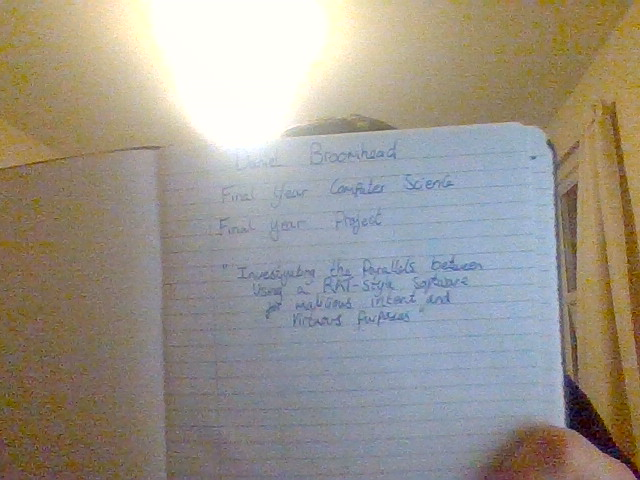 Broomhead
Final Year Computer Science
Final year Project
" Investigating the Parallels between
Using a RAT-Style Software
for malicious intent and
Virtuous Purposes "